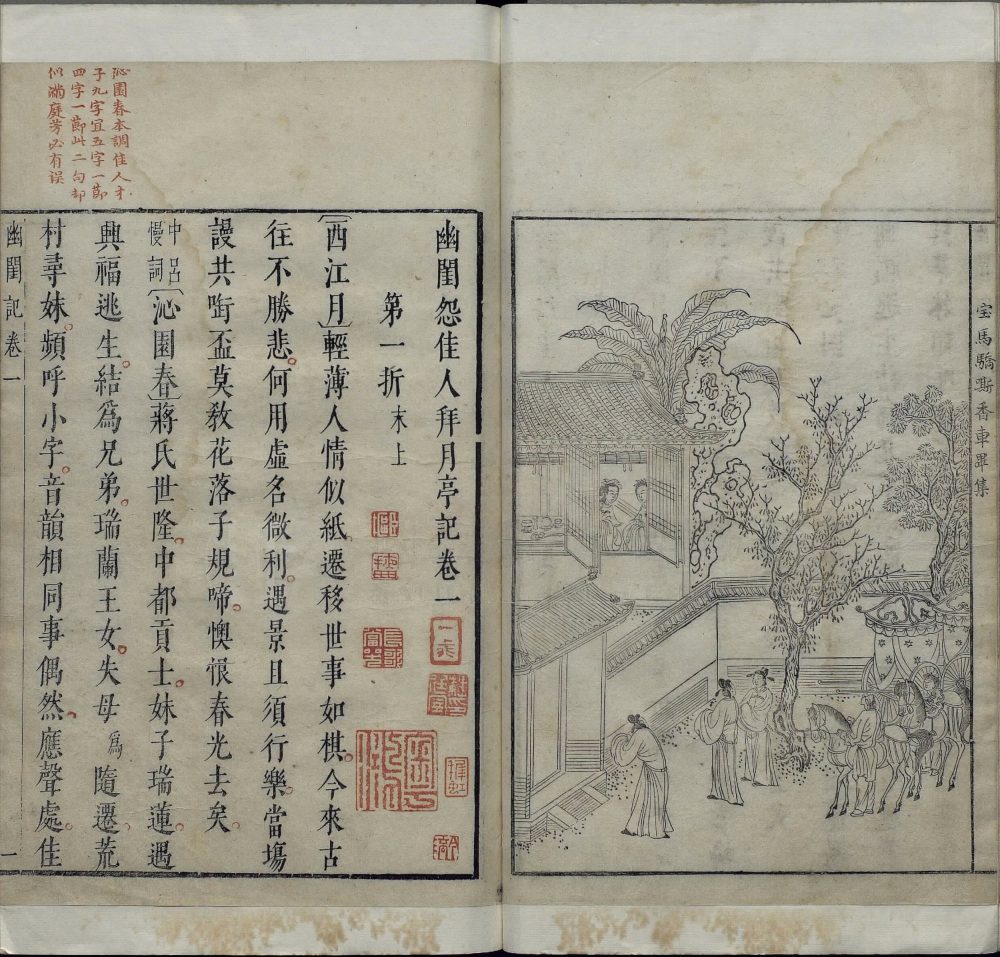 宝馬驕嘶香車畢集
沁園春本調佳人才
子九字宜五字一節
四字一節此二句却
似滿庭芳必有误
幽閨怨佳人拜月亭記卷一
第一折 末上
〔西江月〕輕薄人情似紙。遷移世事如棋。今來古
往不勝悲。何用虛名微利。遇景且須行樂。當塲
謾共啣盃莫教花落子規啼。懊恨春光去矣。
中呂慢詞〔沁園春〕蔣氏世隆。中都貢士。妹子瑞蓮。遇
興福逃生。結爲兄弟。瑞蘭王女。失母爲隨遷。荒
村尋妹。頻呼小字。音韻相同事偶然。應聲處。佳
幽閨記 卷一 一